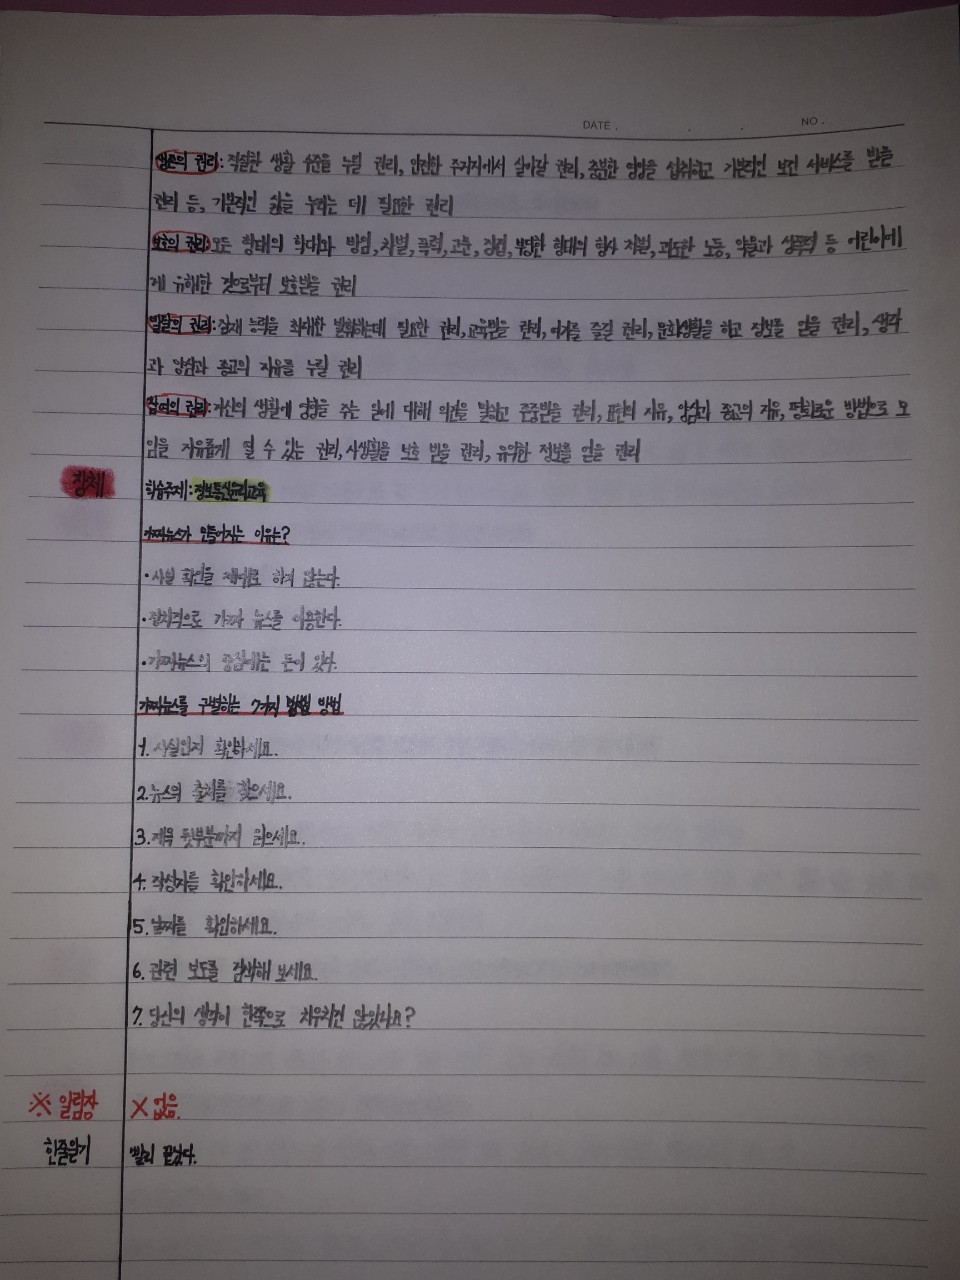 DATE . . . NO .
생존의 권리: 적절한 생활 수준을 누릴 권리, 안전한 주거지에서 살아갈 권리, 충분한 영양을 섭취하고 기본적인 보건 서비스를 받을
권리 등, 기본적인 삶을 누리는 데 필요한 권리
보호의 권리: 모든 형태의 학대와 방임, 차별, 폭력, 고문, 징집, 부당한 형태의 형사 처벌, 과도한 노동, 약물과 성폭력 등 어린이에
게 유해한 것으로부터 보호받을 권리
발달의 권리: 잠재 능력을 최대한 발휘하는데 필요한 권리, 교육받을 권리, 여가를 즐길 권리, 문화생활을 하고 정보를 얻을 권리, 생각
과 양심과 종교의 자유를 누릴 권리
참여의 권리: 자신의 생활에 영향을 주는 일에 대해 의견을 말하고 존중받을 권리, 표현의 자유, 양심과 종교의 자유, 평화로운 방법으로 모
임을 자유롭게 열 수 있는 권리, 사생활을 보호 받을 권리, 유익한 정보를 얻을 권리
창체 학습주제: 정보통신윤리교육
가짜뉴스가 만들어지는 이유는?
·사실 확인을 제대로 하지 않는다.
·정치적으로 가짜 뉴스를 이용한다.
·가짜뉴스의 중심에는 돈이 있다.
가짜뉴스를 구별하는 7가지 방법
1. 사실인지 확인하세요.
2. 뉴스의 출처를 찾으세요.
3. 제목 뒷부분까지 읽으세요.
4. 작성자를 확인하세요.
5. 날짜를 확인하세요.
6. 관련 보도를 검색해 보세요.
7. 당신의 생각이 한쪽으로 치우치진 않았나요?
※ 알림장 X 없음.
한줄일기 빨리 끝났다.